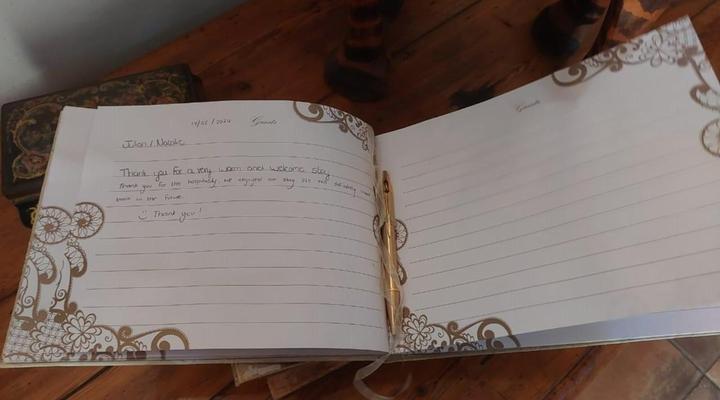 14/05/2024 Guests
Julian / Natalie
Thank you for a very warm and welcome stay
Thank you for the hospitality, we enjoyed our stay
back in the future
☺ Thank you!
Guests